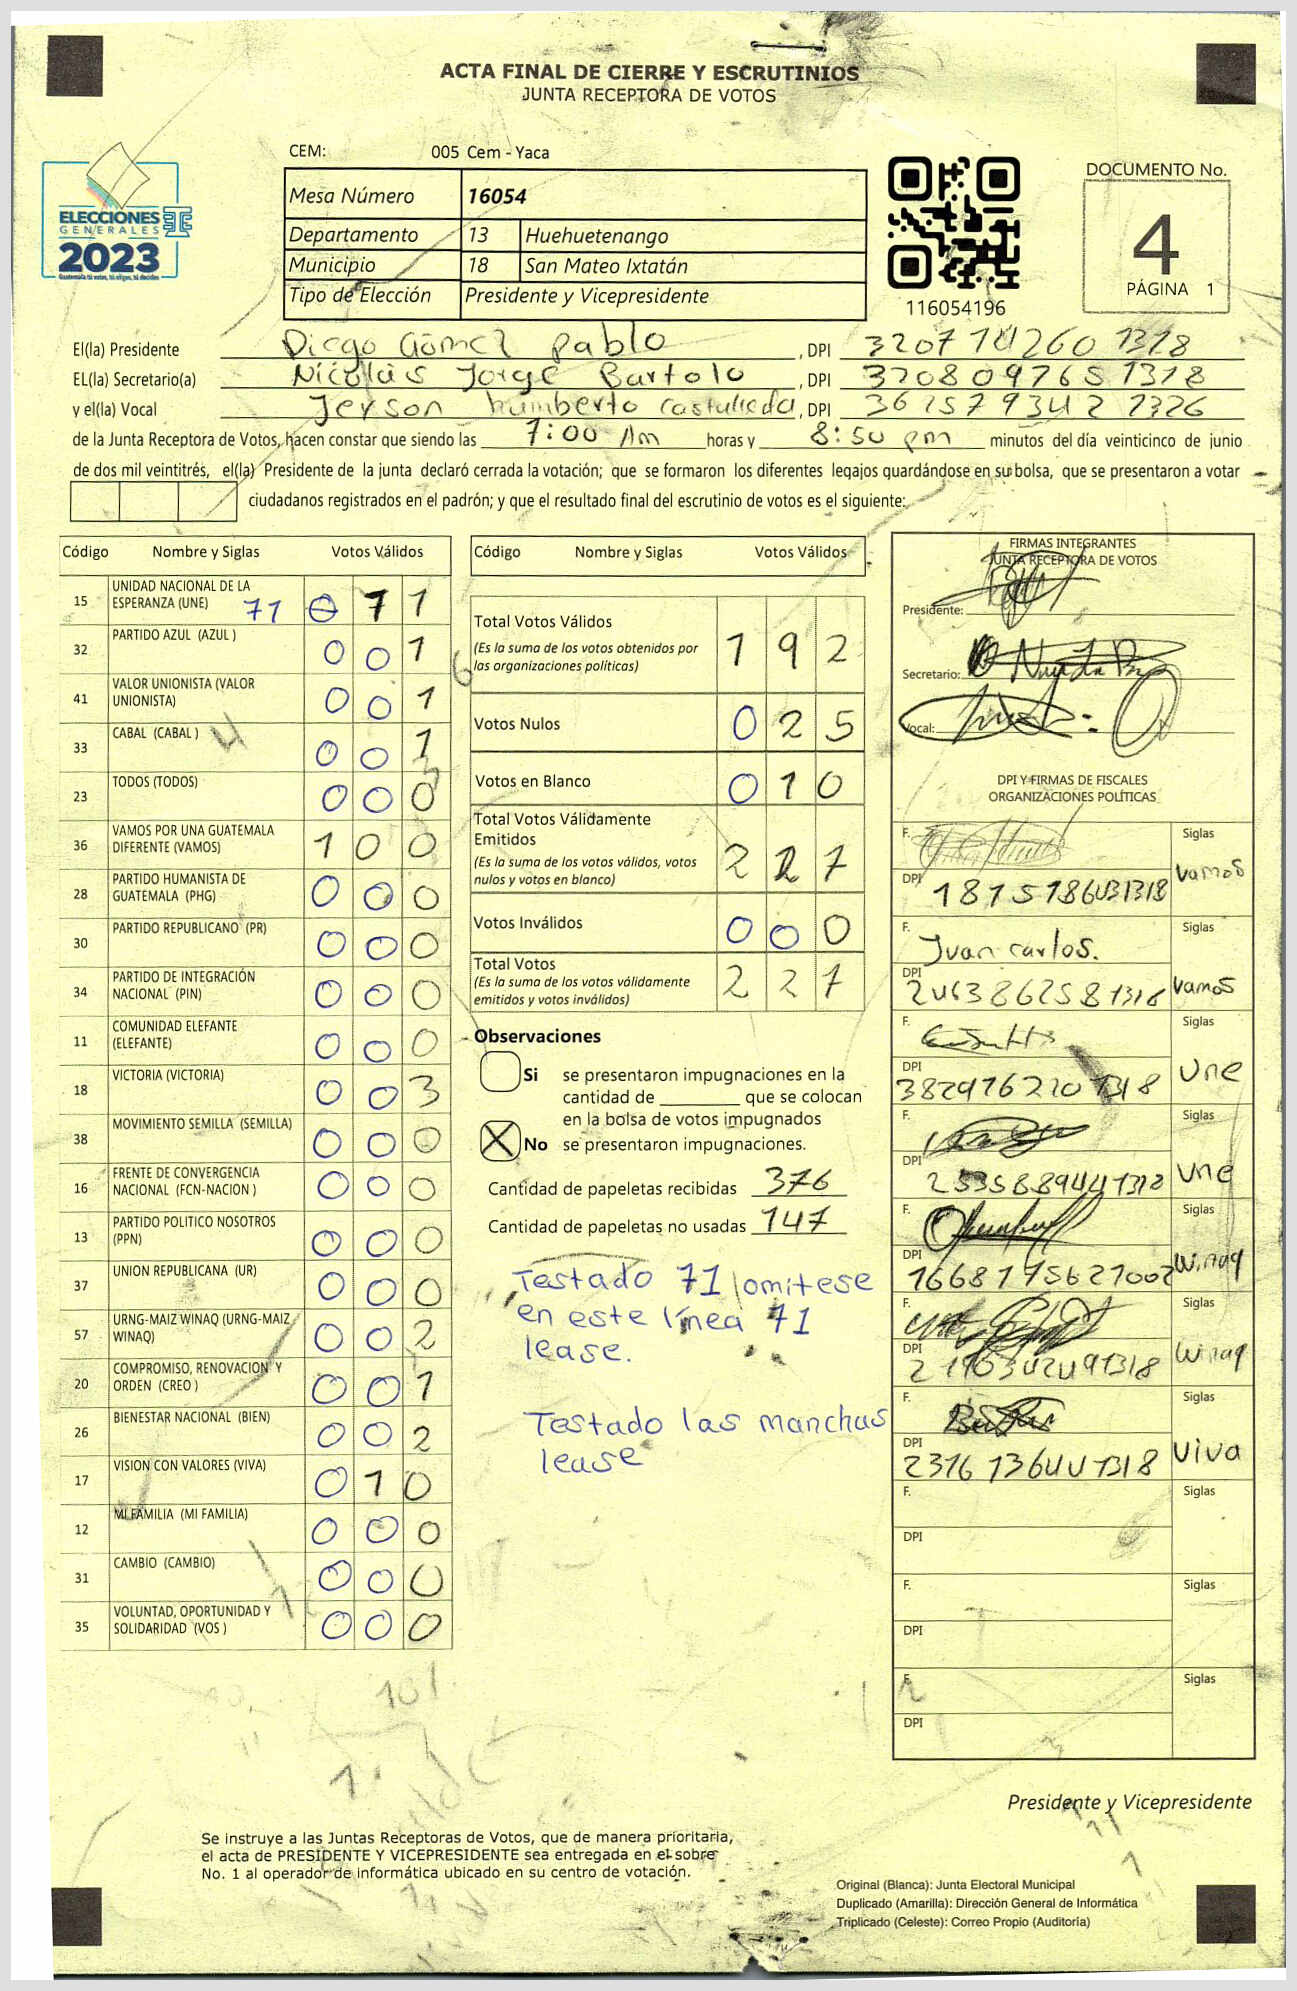 ACTA FINAL DE CIERRE Y ESCRUTINIOS
JUNTA RECEPTORA DE VOTOS
ELECCIONES
GENERALES
2023
CEM: 005 Cem - Yaca
Mesa Número 16054
Departamento 13 Huehuetenango
Municipio 18 San Mateo Ixtatán
Tipo de Elección Presidente y Vicepresidente
116054196
DOCUMENTO No.
4
PÁGINA 1
El(la) Presidente Diego Gómez Pablo, DPI
EL(la) Secretario(a) Nicolás Jorge Bartolo, DPI
y el(la) Vocal Jeyson humberto, DPI
de la Junta Receptora de Votos, hacen constar que siendo las 7:00 Am horas y 8:50 pm minutos del día veinticinco de junio
de dos mil veintitrés, el(la) Presidente de la junta declaró cerrada la votación; que se formaron los diferentes legajos guardándose en su bolsa, que se presentaron a votar
ciudadanos registrados en el padrón; y que el resultado final del escrutinio de votos es el siguiente:
Código Nombre y Siglas Votos Válidos
15 UNIDAD NACIONAL DE LA
ESPERANZA (UNE) 71 0 7 1
32 PARTIDO AZUL (AZUL ) 0 0 1
41 VALOR UNIONISTA (VALOR
UNIONISTA) 0 0 1
33 CABAL (CABAL ) 0 0 1
23 TODOS (TODOS) 0 0 0
36 VAMOS POR UNA GUATEMALA
DIFERENTE (VAMOS) 1 0 0
28 PARTIDO HUMANISTA DE
GUATEMALA (PHG) 0 0 0
30 PARTIDO REPUBLICANO (PR) 0 0 0
34 PARTIDO DE INTEGRACIÓN
NACIONAL (PIN) 0 0 0
11 COMUNIDAD ELEFANTE
(ELEFANTE) 0 0 0
18 VICTORIA (VICTORIA) 0 0 3
38 MOVIMIENTO SEMILLA (SEMILLA) 0 0 0
16 FRENTE DE CONVERGENCIA
NACIONAL (FCN-NACION ) 0 0 0
13 PARTIDO POLITICO NOSOTROS
(PPN) 0 0 0
37 UNION REPUBLICANA (UR) 0 0 0
57 URNG-MAIZ WINAQ (URNG-MAIZ
WINAQ) 0 0 2
20 COMPROMISO, RENOVACION Y
ORDEN (CREO ) 0 0 1
26 BIENESTAR NACIONAL (BIEN) 0 0 2
17 VISION CON VALORES (VIVA) 0 1 0
12 MI FAMILIA (MI FAMILIA) 0 0 0
31 CAMBIO (CAMBIO) 0 0 0
35 VOLUNTAD, OPORTUNIDAD Y
SOLIDARIDAD (VOS ) 0 0 0
Código Nombre y Siglas Votos Válidos
Total Votos Válidos 1 9 2
(Es la suma de los votos obtenidos por
las organizaciones políticas)
Votos Nulos 0 2 5
Votos en Blanco 0 1 0
Total Votos Válidamente
Emitidos 2 2 7
(Es la suma de los votos válidos, votos
nulos y votos en blanco)
Votos Inválidos 0 0 0
Total Votos 2 2 7
(Es la suma de los votos válidamente
emitidos y votos inválidos)
Observaciones
Si se presentaron impugnaciones en la
cantidad de ________ que se colocan
en la bolsa de votos impugnados
X No se presentaron impugnaciones.
Cantidad de papeletas recibidas 376
Cantidad de papeletas no usadas 147
Testado 71 omitese
en este línea 71
lease.
Testado las manchas
lease
FIRMAS INTEGRANTES
JUNTA RECEPTORA DE VOTOS
Presidente:
Secretario:
Vocal:
DPI Y FIRMAS DE FISCALES
ORGANIZACIONES POLÍTICAS
F. Siglas
DPI vamos
F. Juan carlos. Siglas
DPI vamos
F. Siglas
DPI Une
F. Siglas
DPI Une
F. Siglas
DPI Winaq
F. Siglas
DPI Winaq
F. Siglas
DPI viva
F. Siglas
DPI
F. Siglas
DPI
F. Siglas
DPI
101
Presidente y Vicepresidente
Se instruye a las Juntas Receptoras de Votos, que de manera prioritaria,
el acta de PRESIDENTE Y VICEPRESIDENTE sea entregada en el sobre
No. 1 al operador de informática ubicado en su centro de votación.
Original (Blanca): Junta Electoral Municipal
Duplicado (Amarilla): Dirección General de Informática
Triplicado (Celeste): Correo Propio (Auditoría)